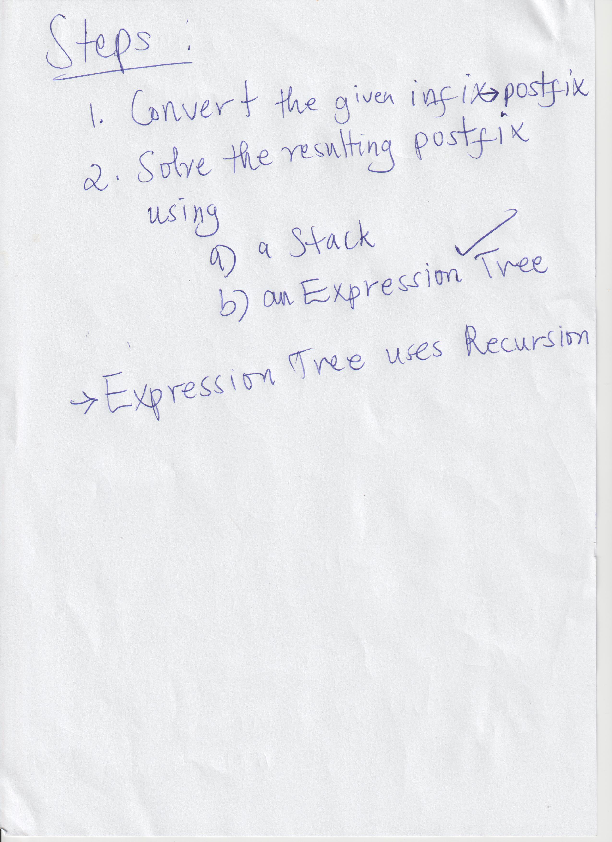 Steps :
1. Convert the given infix→postfix
2. Solve the resulting postfix
using
a) a Stack
b) an Expression Tree
→ Expression Tree uses Recursion